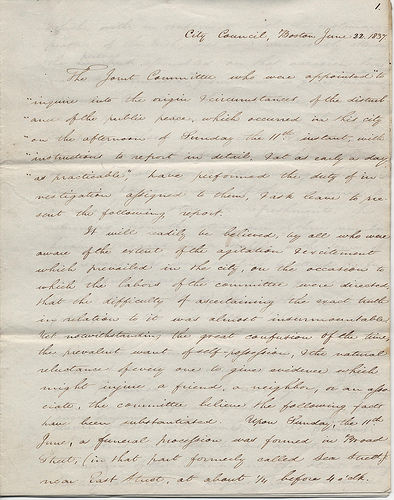 1.
City Council, Boston June 22. 1837
The Joint Committee who were appointed "to
"inquire into the origin & circumstances of the disturb
"ance of the public peace, which occurred in this city
"on the afternoon of Sunday the 11th instant, with
"instructions to report in detail, & at as early a day
"as practicable" have performed the duty of in-
vestigation assigned to them, & ask leave to pre-
sent the following report.
It will readily be believed, by all who were
aware of the extent of the agitation & excitement
which prevailed in the city, on the occasion to
which the labors of the committee were directed,
that the difficulty of ascertaining the exact truth
in relation to it was almost insurmountable.
Yet notwithstanding the great confusion of the time,
the prevalent want of self-possession, & the natural
reluctance of every one to give evidence which
might injure a friend, a neighbor, or an asso
ciate, the committee believe the following facts
have been substantiated. Upon Sunday, the 11th
June, a funeral procession was formed in Broad
Street, (in that part formerly called Sea Street,)
near East Street, at about 1/4 before 4 o'clk.